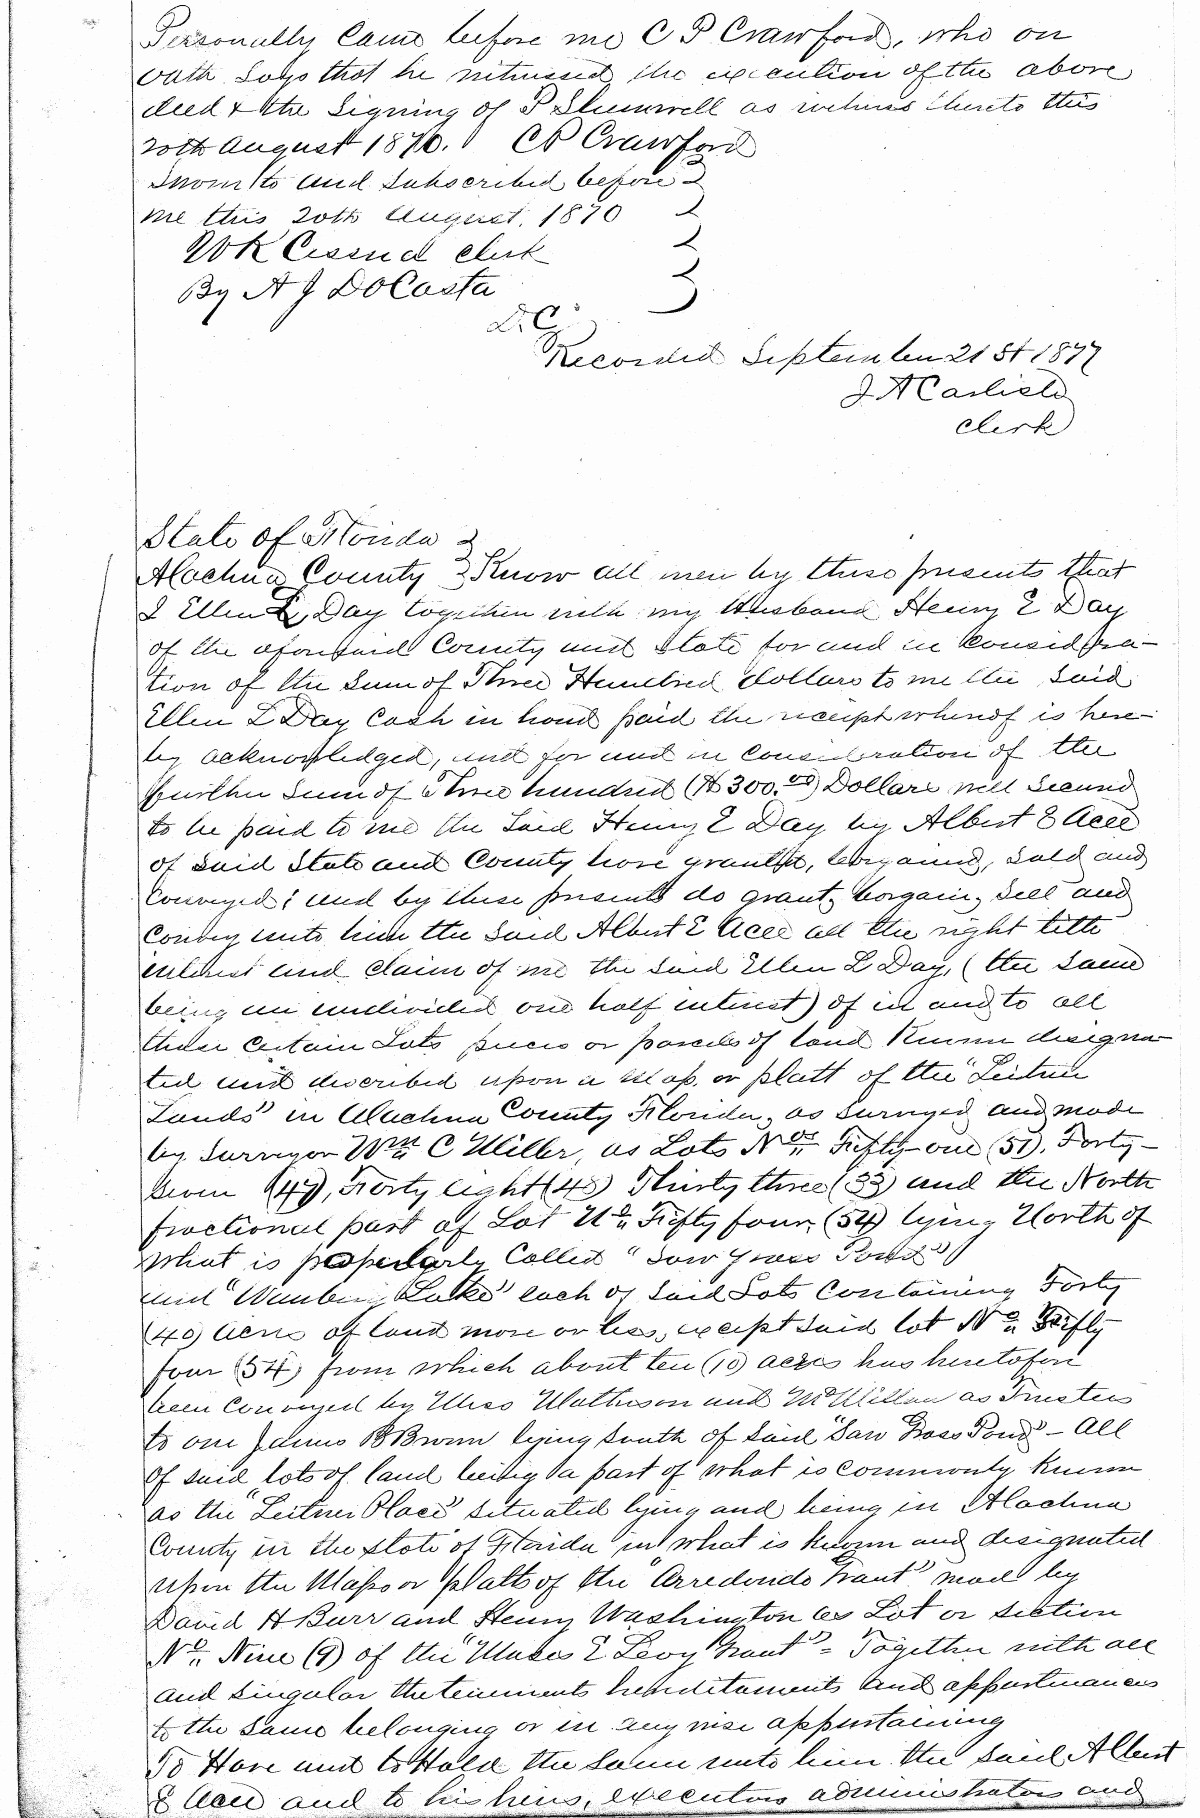 Personally Came before me C P Crawford, who on
oath Says that he witnessed the execution of the above
deed & the Signing of P Shumwell as witness thereto this
20th August 1870. C P Crawford
Sworn to and Subscribed before
me this 20th August, 1870
W K Cessna clerk
By A J DaCosta
D. C.
Recorded September 21st 1877
J. A Carlisle
clerk
State of Florida
Alachua County Know all men by these presents that
I Ellen L. Day together with my Husband Henry E Day
of the aforesaid County and State for and in Considera-
tion of the Sum of Three Hundred dollars to me the Said
Ellen L Day Cash in hand paid the receipt whereof is here-
by acknowledged, and for and in Consideration of the
further Sum of Three hundred ($300.00) Dollars well Secured
to be paid to me the Said Henry E Day by Albert E Acee
of Said State and County have granted, bargained, Sold and
Conveyed; and by these presents do grant, bargain, Sell and
Convey unto him the Said Albert E Acee all the right title
interest and claim of me the Said Ellen L Day, (the Same
being an undivided one half interest) of in and to all
those Certain Lots pieces or parcels of land Known designa-
ted and described upon a Map or platt of the "Leitner
Lands" in Alachua County Florida, as Surveyed and made
by Surveyor Wm C Miller, as Lots Nos. Fifty-one (51), Forty-
Seven (47), Forty eight (48) Thirty three (33) and the North
fractional part of Lot No. Fifty four, (54) lying North of
what is properly Called "Saw Grass Pond"
and Lake" each of Said Lots Containing Forty
(40) acres of land more or less, except Said lot No. Fifty
four (54) from which about ten (10) acres has heretofore
been Conveyed by Mess Matheson and McMillan as Trustees
to one James B Brown lying South of Said "Saw Grass Pond" - All
of Said lots of land being a part of what is commonly Known
as the "Leitner Place" Situated lying and being in Alachua
County in the State of Florida in what is Known and designated
upon the Maps or platts of the "Arredondo Grant" made by
David H Burr and Henry Washington as Lot or Section
No. Nine (9) of the "Moses E Levy Grant" = Together with all
and Singular the tenements hereditaments and appurtenances
to the Same belonging or in any wise appertaining
To Have and to Hold the Same unto him the Said Albert
E Acee and to his heirs, executors administrators and